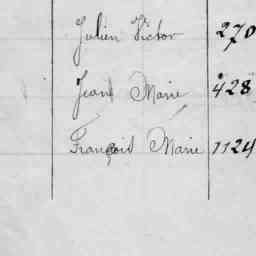 Julien Victor 270
Jean Marie 428
François Marie 1124